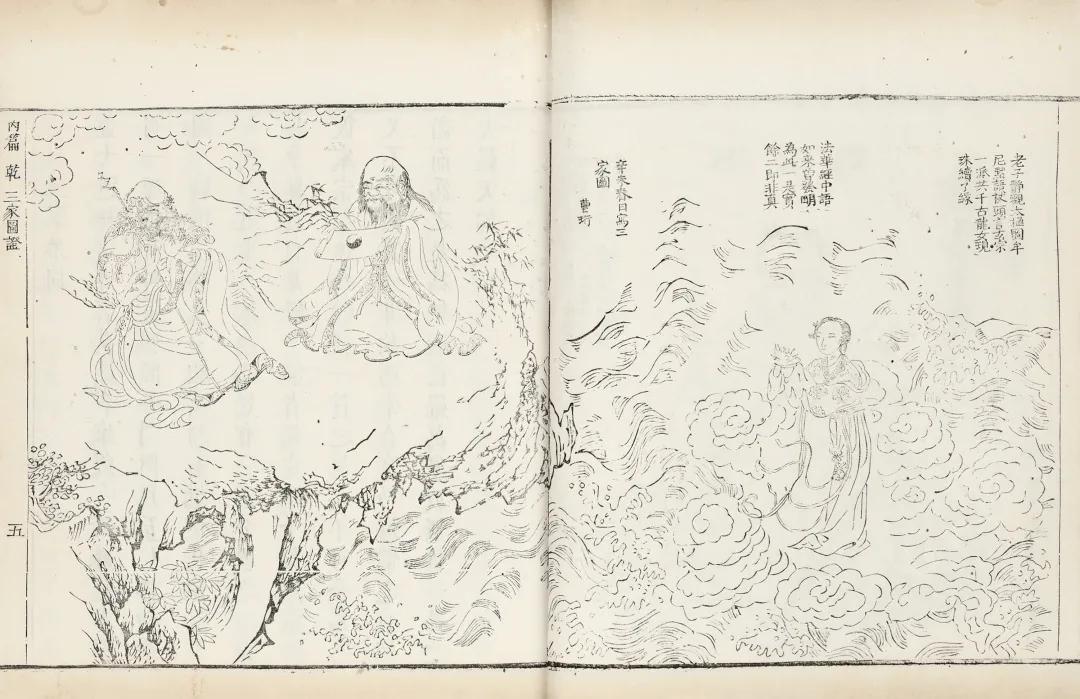 老子靜觀太極圖牟
尼語杖頭言玄宗
一派共千古龍女現
珠續了緣
法華經中語
如來曾發明
為此一是實
餘二即非真
辛未春日寫三
家圖 曹珩
內篇 乾 三家圖證
五